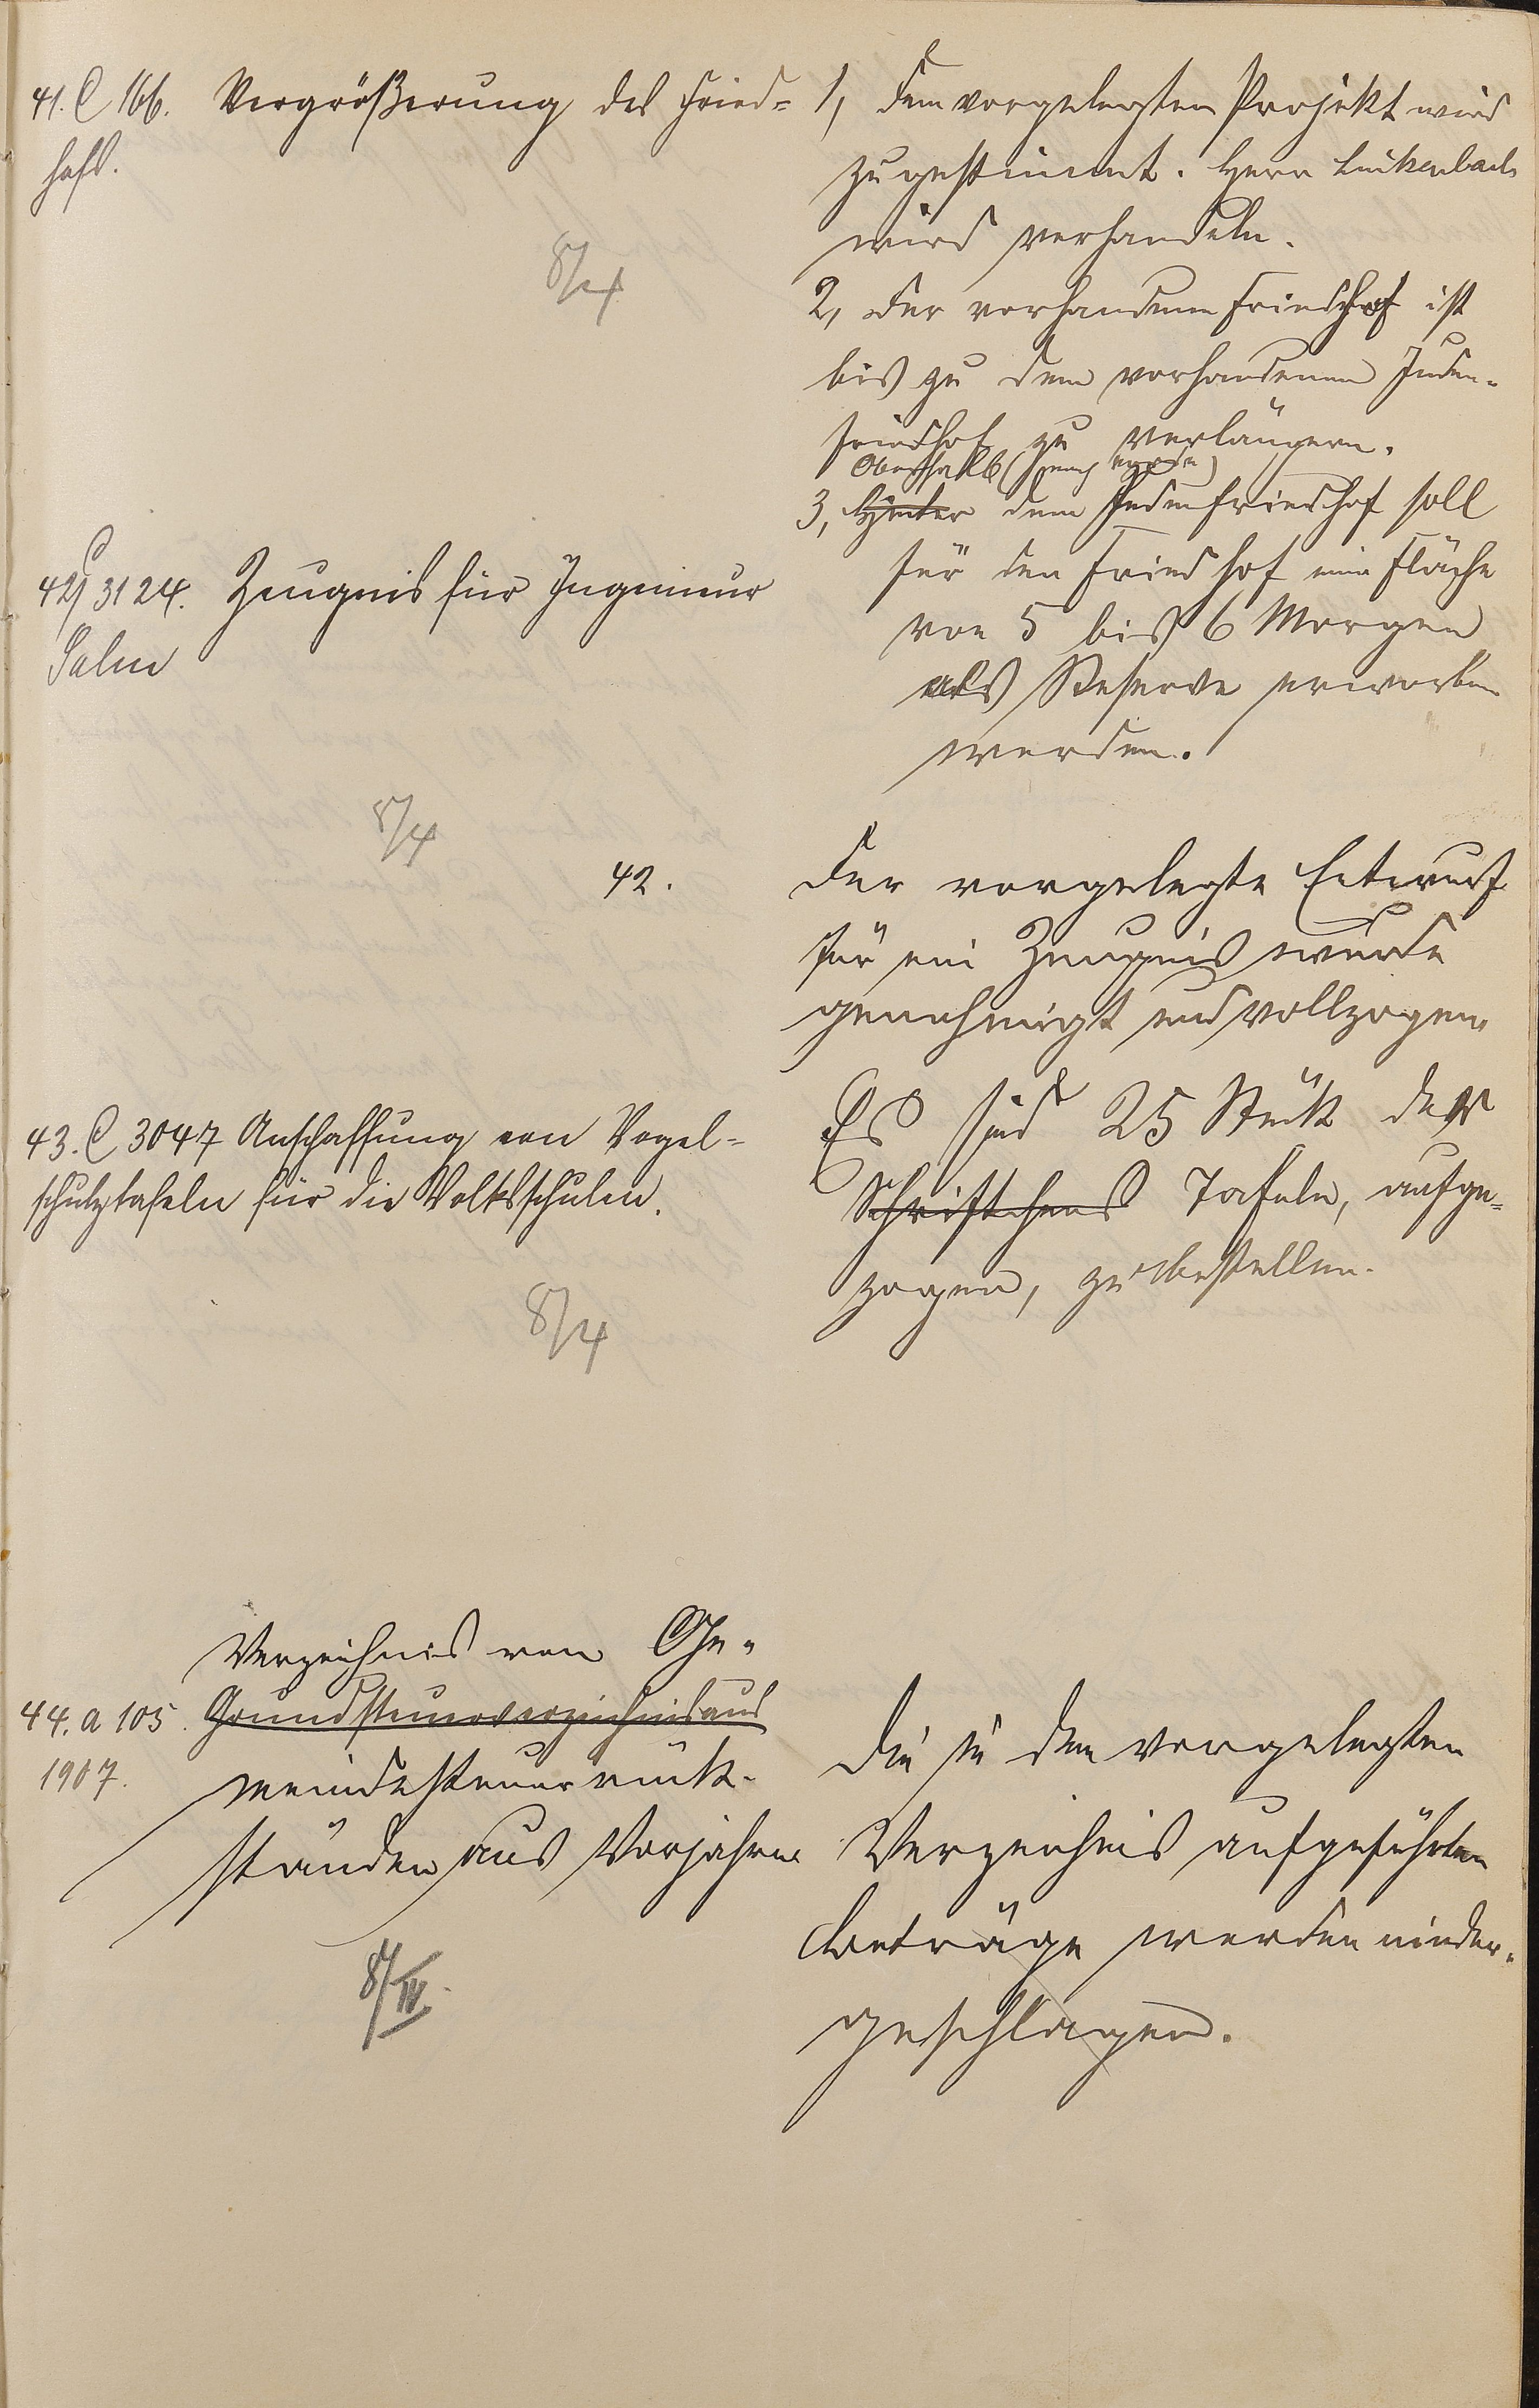 41. C 166. Vergrößerung des Fried-
hofs.
8/4
1, Dem vorgelegten Projekt wird
zugestimmt. Herr Luckenbach
wird verhandeln.
2, Der vorhandene Friedhof ist
bis zu dem vorhandenen Juden-
friedhof zu verlängern.
Oberhalb
3, Hinter dem Judenfriedhof soll
für den Friedhof eine Fläche
von 5 bis 6 Morgen
als Reserve erworben
werden.
42. C 3124. Zeugnis für Ingenieur
Salm
8/4
42.
Der vorgelegte Entwurf
für ein Zeugnis wurde
genehmigt und vollzogen.
43. C 3047 Anschaffung von Vogel-
schutztafeln für die Volksschulen.
8/4
Es sind 25 Stück der
Schriftchens Tafeln, aufge-
zogen, zu bestellen.
Verzeichnis von Ge-
44. a 105. Grundsteuerverzeichnis aus
1907. meindesteuerrück-
ständen aus Vorjahren
8/IV.
Die in dem vorgelegten
Verzeichnis aufgeführten
Beträge werden nieder-
geschlagen.